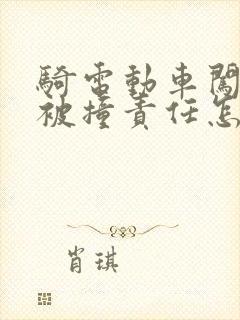 騎電動車闖
被撞責任怎
肖琪